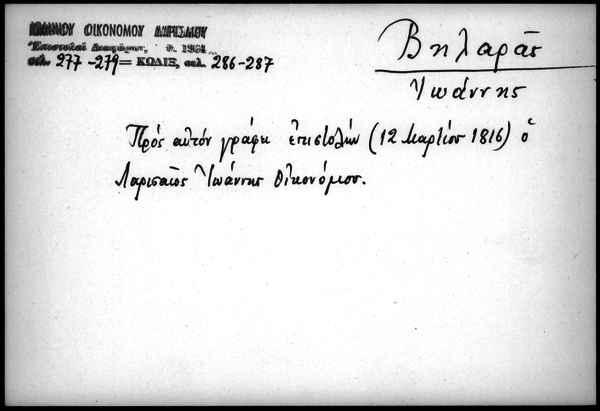 ΙΩΑΝΝΟΥ ΟΙΚΟΝΟΜΟΥ ΛΑΡΙΣΑΙΟΥ
Ἐπιστολαὶ Διαφόρων, 1964
σελ. 277-279 = ΚΩΔΙΞ, σελ. 286-287
Βηλαρᾶς
Ἰωάννης
Πρός αὐτόν γράφει ἐπιστολήν (12 Μαρτίου 1816) ὁ
Λαρισαῖος Ἰωάννης Οἰκονόμου.